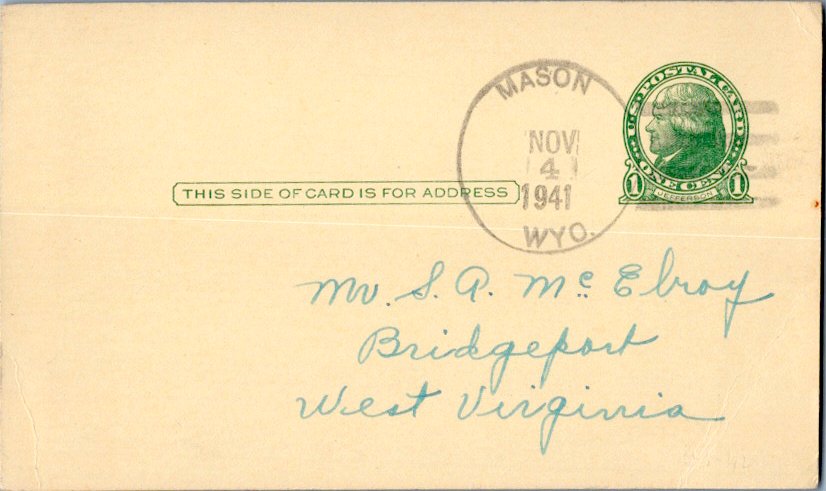 MASON
NOV
4
1941
WYO.
U.S. POSTAL CARD
ONE CENT
1 1
JEFFERSON
THIS SIDE OF CARD IS FOR ADDRESS
Mr. S. A. Mc Elroy
Bridgeport
West Virginia